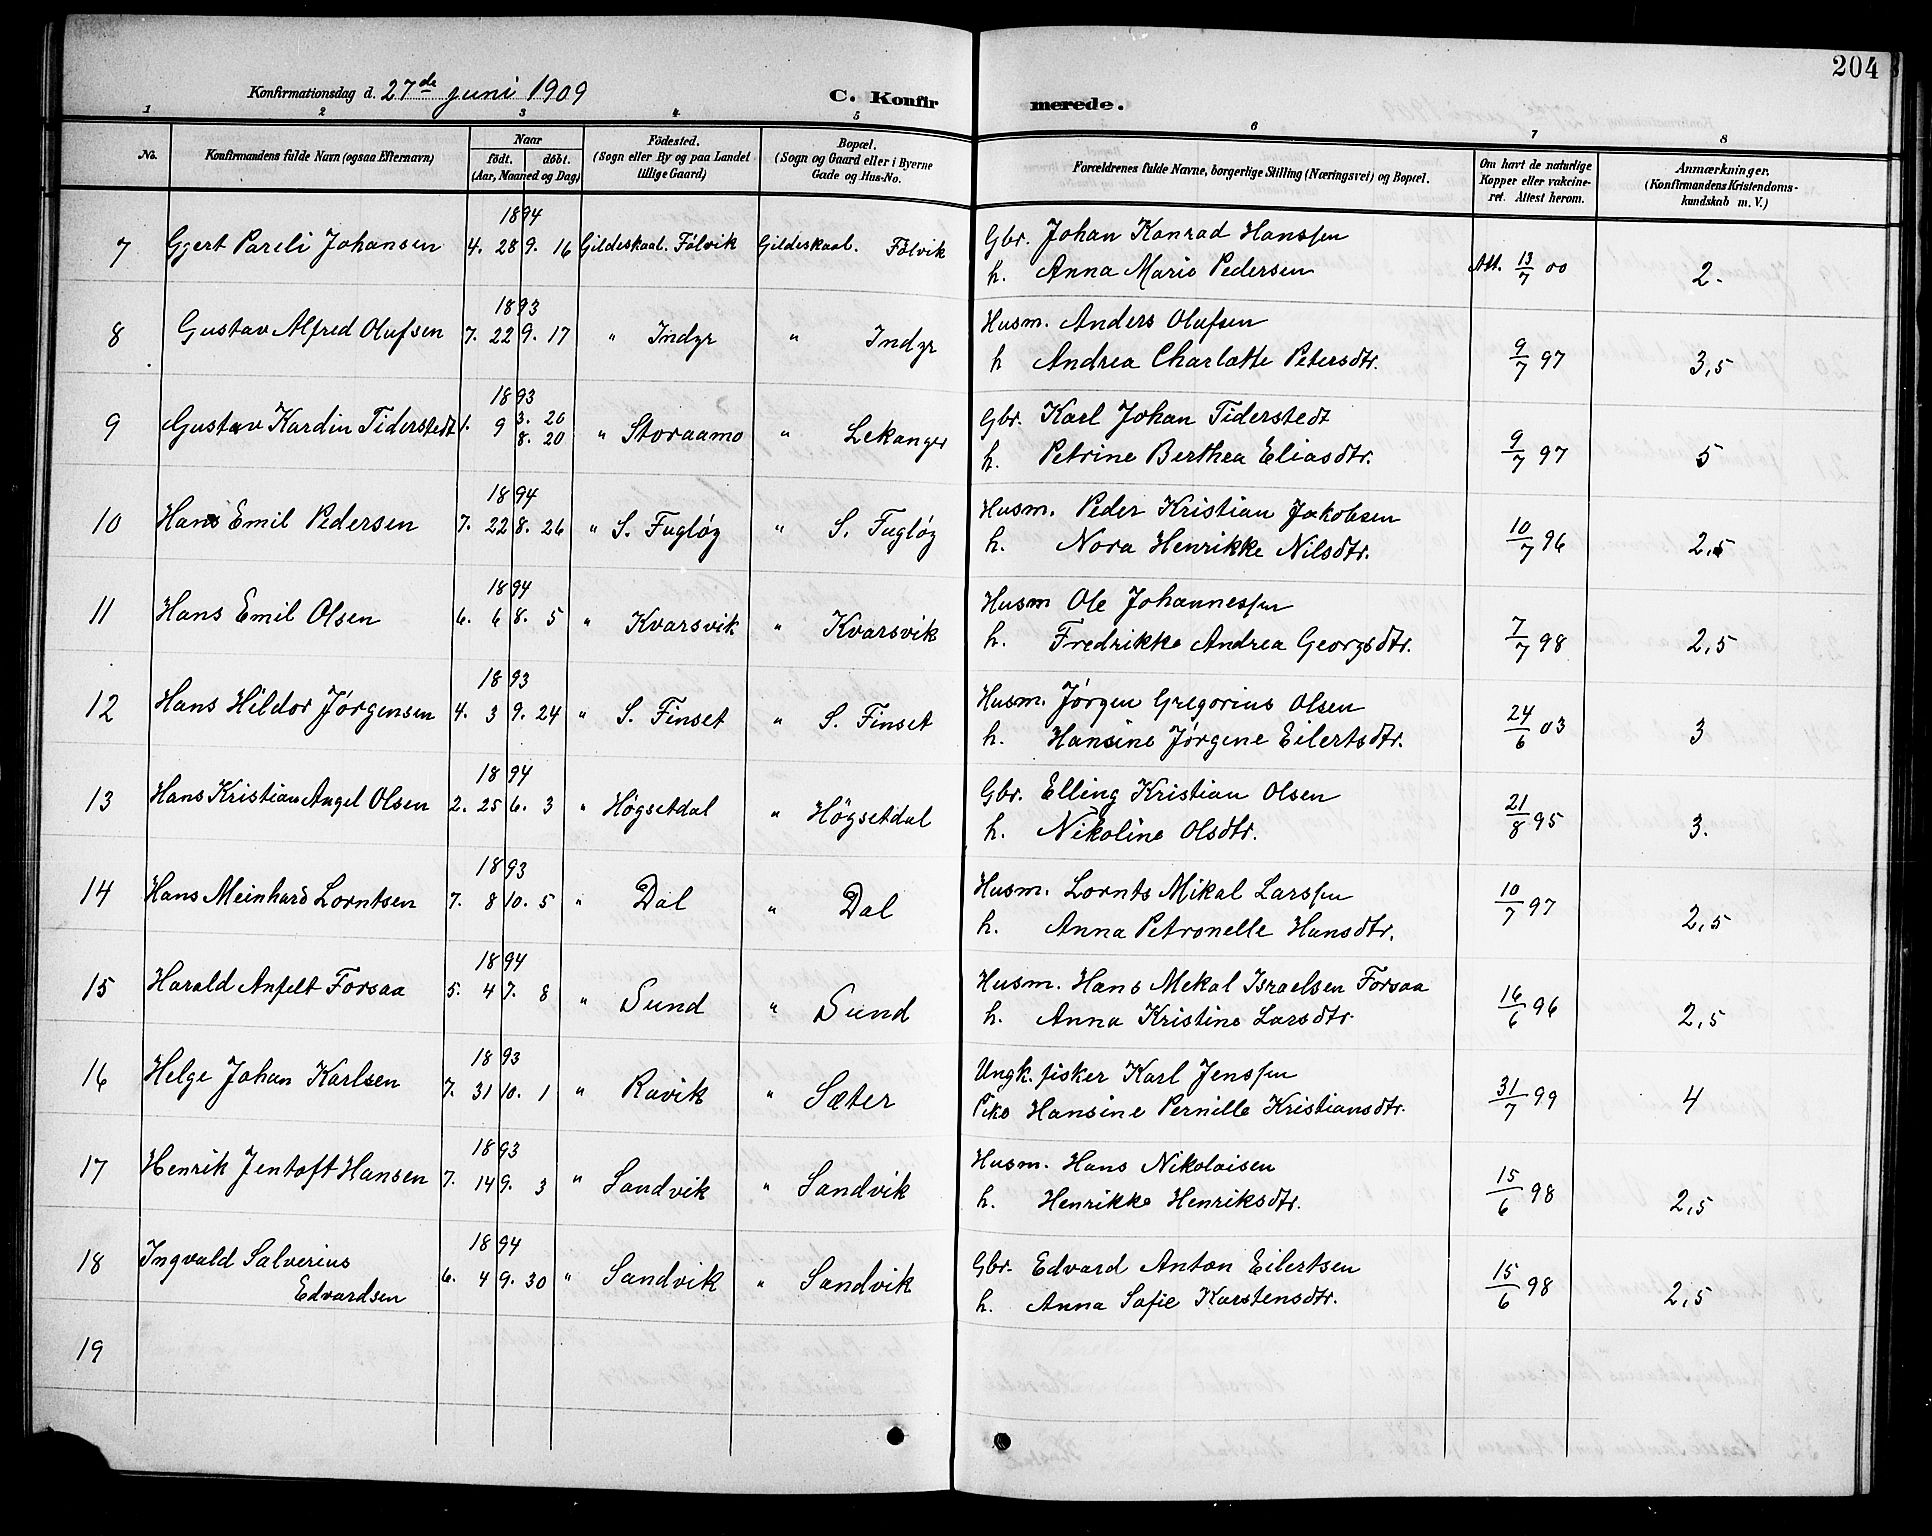 204
Konfirmationsdag d. 27de juni 1909
C. Konfirmerede.
1 2 3 4 5 6 7 8
No. Konfirmandens fulde Navn (ogsaa Efternavn) Naar født. døbt. (Aar, Maaned og Dag) Fødested. (Sogn eller By og paa Landet tillige Gaard) Bopæl. (Sogn og Gaard eller i Byerne Gade og Hus-No. Forældrenes fulde Navne, borgerlige Stilling (Næringsvei) og Bopæl. Om havt de naturlige Kopper eller vakcineret. Attest herom. Anmærkninger. (Konfirmandens Kristendomskundskab m. V.)
1894
7 Ggert Pareli Johansen 4. 28 9. 16 Gildeskaal. Fölvik Gildeskaal. Fölvik Gbr. Johan Konrad Hanssen
h. Anna Marie Pedersen Att. 13/7 00 2-
1893
8 Gustav Alfred Olufsen 7. 22 9. 17 " Indyr " Indyr Husm. Anders Olufsen
h Andrea Charlotte Petersdtr. 9/7 97 3,5
1893
9 Gustav Kardin Tiderstedt 1. 9 3. 20 8. 20 " Storaamo " Lekanger Gbr. Karl Johan Tiderstedt
h. Petrine Berthea Eliasdtr. 9/7 97 5
1894
10 Hans Emil Pedersen 7. 22 8. 26 " S. Fugløy " S. Fugløy Husm. Peder Kristian Jakobsen
h. Nora Henrikke Nilsdtr. 10/7 96 2,5
1894
11 Hans Emil Olsen 6. 6 8. 5 " Kvarsvik " Kvarsvik Husm Ole Johannessen
h. Fredrikke Andrea Georgsdtr. 7/7 98 2,5
1893
12 Hans Hildor Jørgensen 4. 3 9. 24 " S. Finset " S. Finset Husm. Jørgen Gregorius Olsen
h. Hansine Jørgene Eilertsdtr. 24/6 03 3
1894
13 Hans Kristian Angel Olsen 2. 25 6. 3 " Högsetdal " Högsetdal Gbr. Elling Kristian Olsen
h. Nikoline Olsdtr. 21/8 95 3.
1893
14 Hans Meinhard Lorntsen 7. 8 10. 5 " Dal " Dal Husm. Lornts Mikal Larssen
h. Anna Petronelle Hansdtr. 10/7 97 2,5
1894
15 Harald Anfelt Forsaa 5. 4 7. 8 " Sund " Sund Husm. Hans Mekal Israelsen Forsaa
h. Anna Kristine Larsdtr. 16/6 96 2,5
1893
16 Helge Johan Karlsen 7. 31 10. 1 " Ravik " Sæter Ungk. fisker Karl Jenssen
Pike Hansine Pernille Kristiansdtr. 31/7 99 4
1893
17 Henrik Jentoft Hansen 7. 14 9. 3 " Sandvik " Sandvik Husm. Hans Nikolaisen
h. Henrikke Henriksdtr. 15/6 98 2,5
1894
18 Ingvald Salverius Edvardsen 6. 4 9. 30 " Sandvik " Sandvik Gbr. Edvard Anton Eilertsen
h. Anna Sofie Karstensdtr. 15/6 98 2,5
19